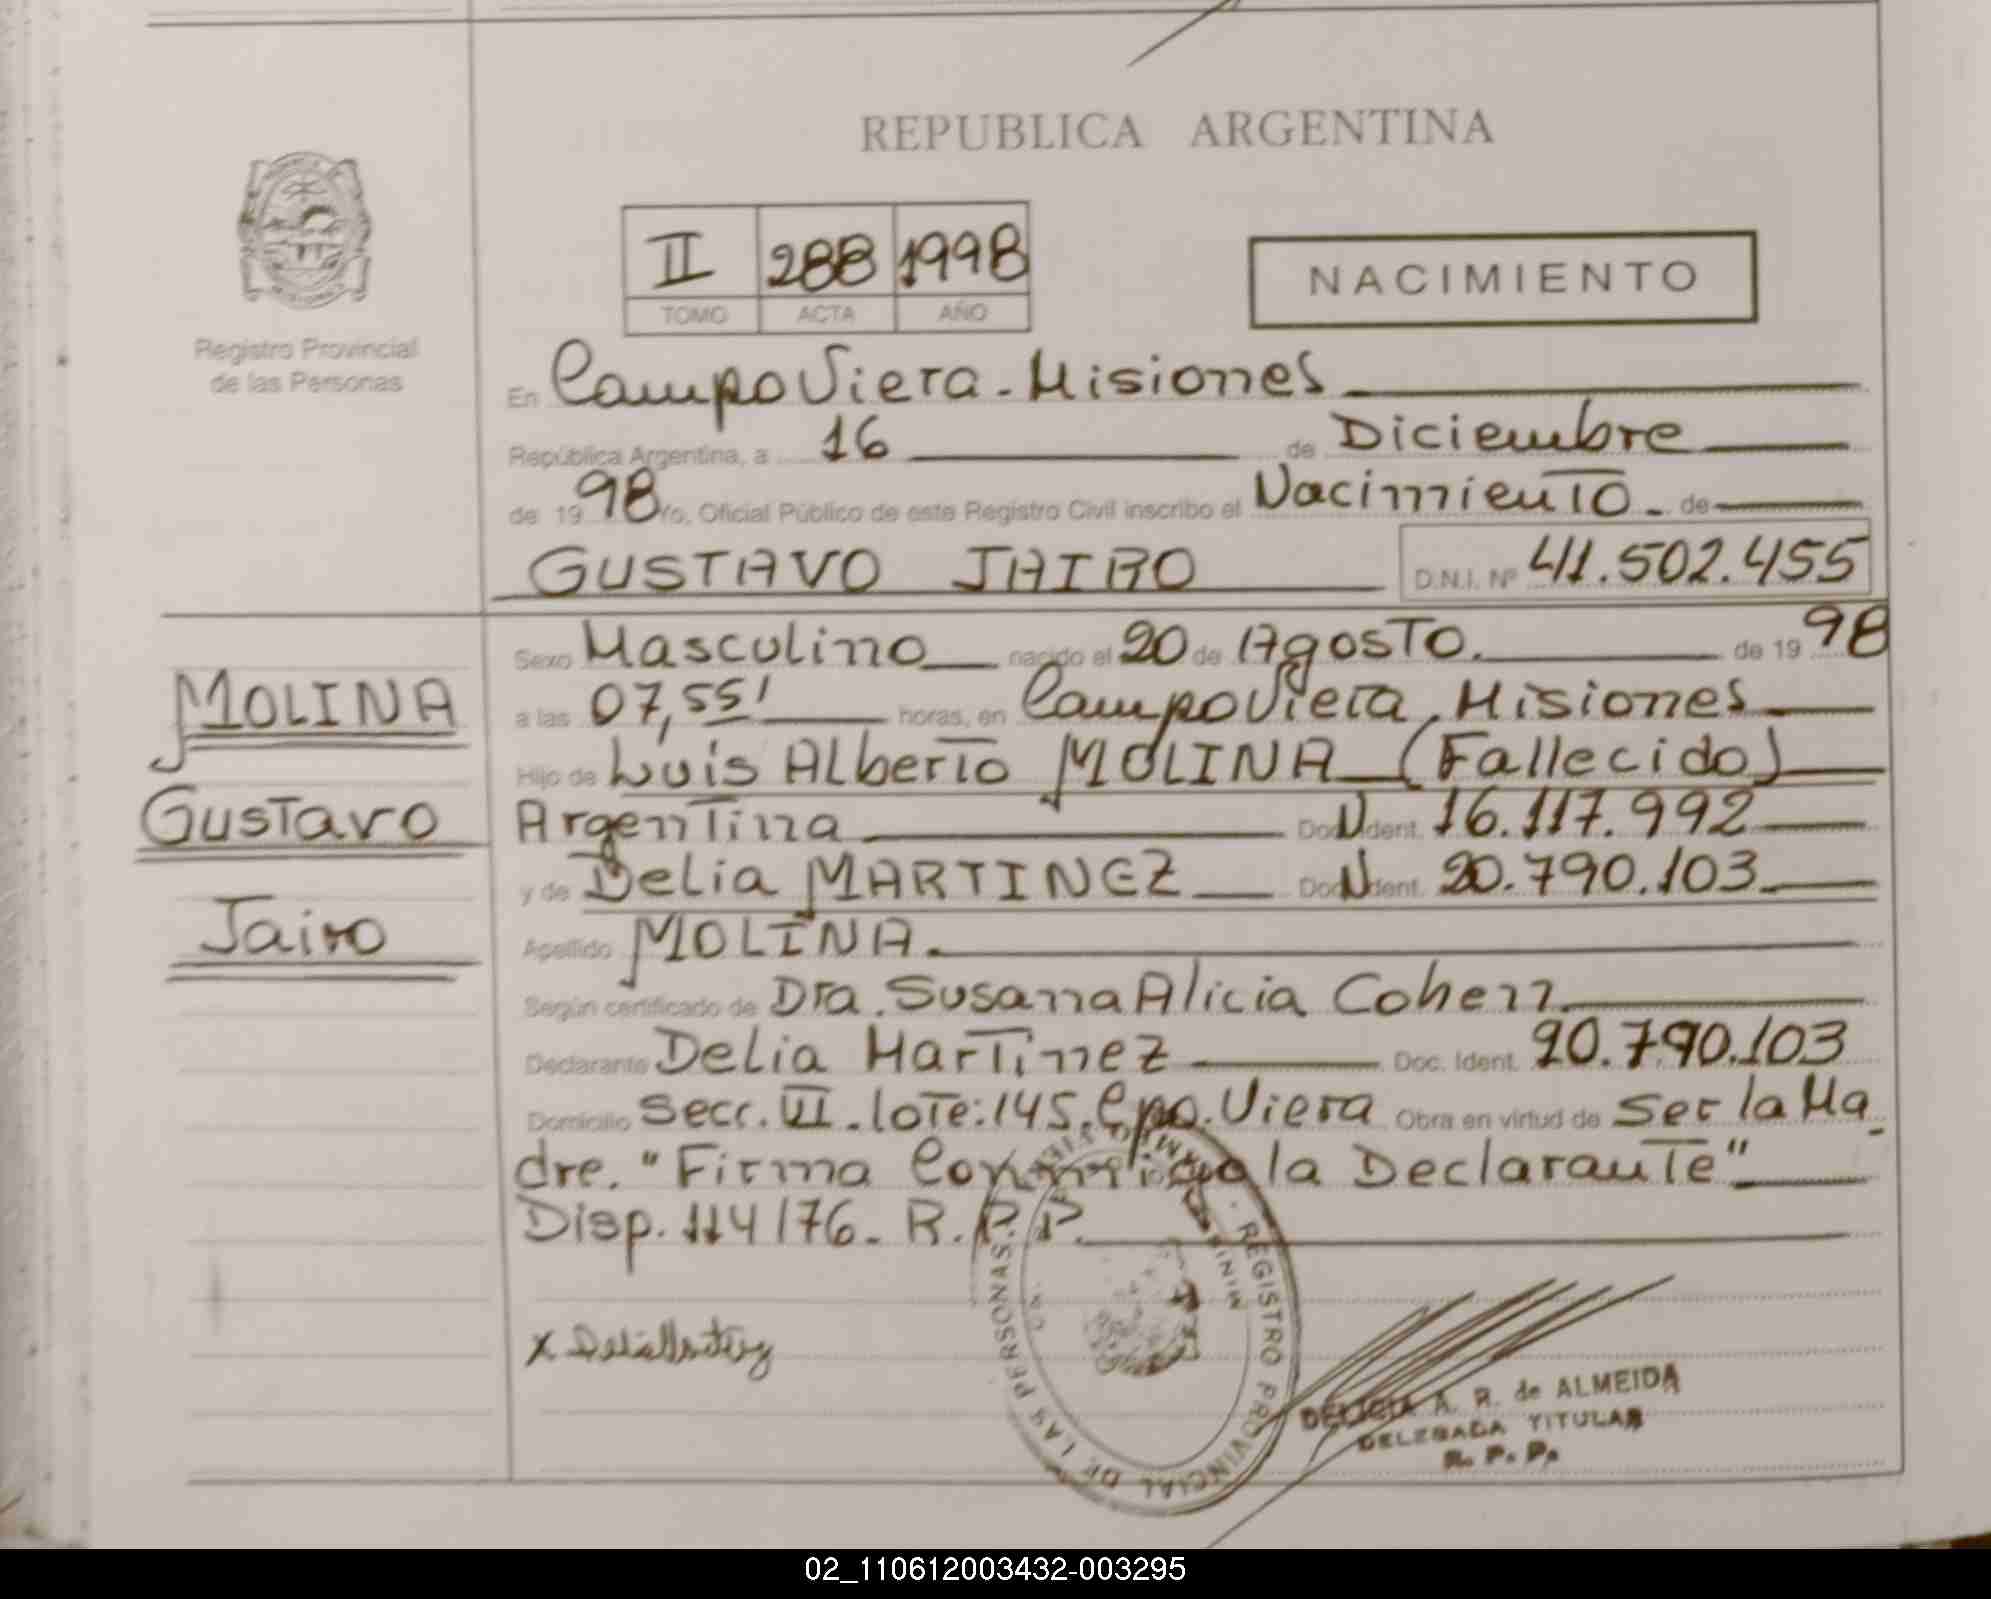 REPUBLICA ARGENTINA
II 288 1998
TOMO ACTA AÑO
NACIMIENTO
Registro Provincial
de las Personas
En Campo Viera - Misiones
República Argentina, a 16 de Diciembre
de 19 98 Yo, Oficial Público de este Registro Civil inscribo el Nacimiento - de
GUSTAVO JAIRO D.N.I. Nº 41.502.455
MOLINA
Gustavo
Jairo
Sexo Masculino nacido el 20 de Agosto. de 19 98
a las 07,55' horas, en Campo Viera, Misiones
Hijo de Luis Alberto MOLINA (Fallecido)
Argentina Doc. Ident. 16.117.992
y de Delia MARTINEZ Doc. Ident. 20.790.103
Apellido MOLINA.
Según certificado de Dra. Susana Alicia Cohen
Declarante Delia Martinez Doc. Ident. 20.790.103
Domicilio Secc. VI - lote: 145, Cpo. Viera Obra en virtud de Ser la Ma
dre. "Firma Conmigo la Declarante"
Disp. 114/76 - R.P.P.
REGISTRO PROVINCIAL DE LAS PERSONAS
DELICIA A. R. de ALMEIDA
DELEGADA TITULAR
R. P. P.
02_110612003432-003295